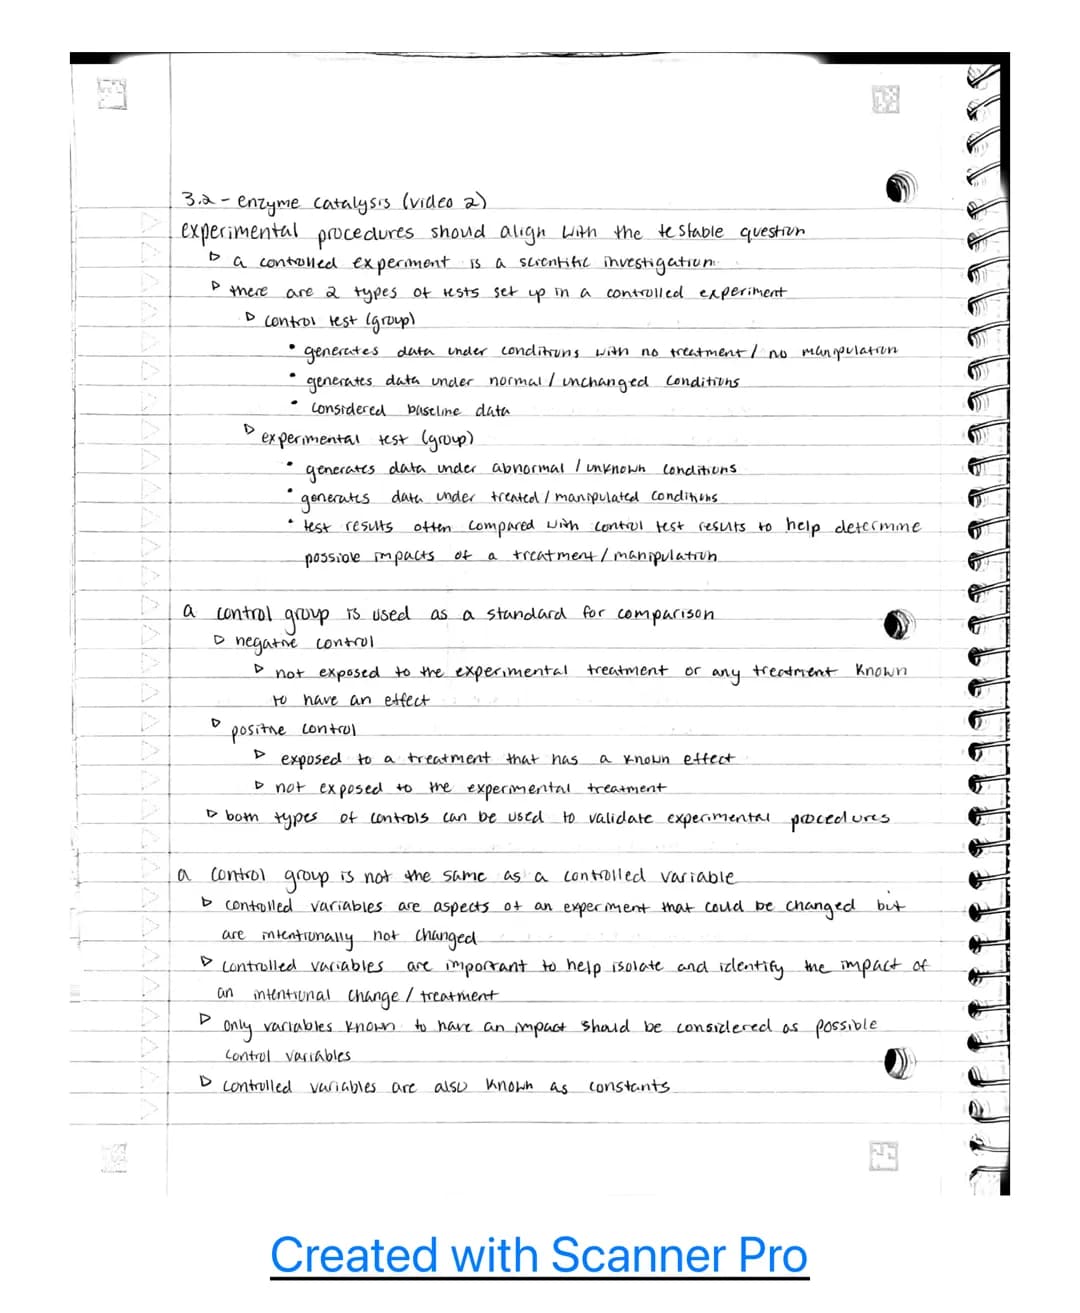 3.2 - enzyme catalysis (video 2)
experimental procedures should align with the testable question
▷ a controlled experiment is a scientific investigation
▷ there are 2 types of tests set up in a controlled experiment
▷ control test (group)
• generates data under conditions with no treatment / no manipulation
• generates data under normal / unchanged conditions
• considered baseline data
▷ experimental test (group)
• generates data under abnormal / unknown conditions
• generates data under treated / manipulated conditions
• test results often compared with control test results to help determine
possible impacts of a treatment / manipulation
a control group is used as a standard for comparison
▷ negative control
▷ not exposed to the experimental treatment or any treatment known
to have an effect
▷ positive control
▷ exposed to a treatment that has a known effect
▷ not exposed to the experimental treatment
▷ both types of controls can be used to validate experimental procedures
a control group is not the same as a controlled variable
▷ controlled variables are aspects of an experiment that could be changed but
are intentionally not changed
▷ controlled variables are important to help isolate and identify the impact of
an intentional change / treatment
▷ only variables known to have an impact should be considered as possible
control variables
▷ controlled variables are also known as constants
Created with Scanner Pro